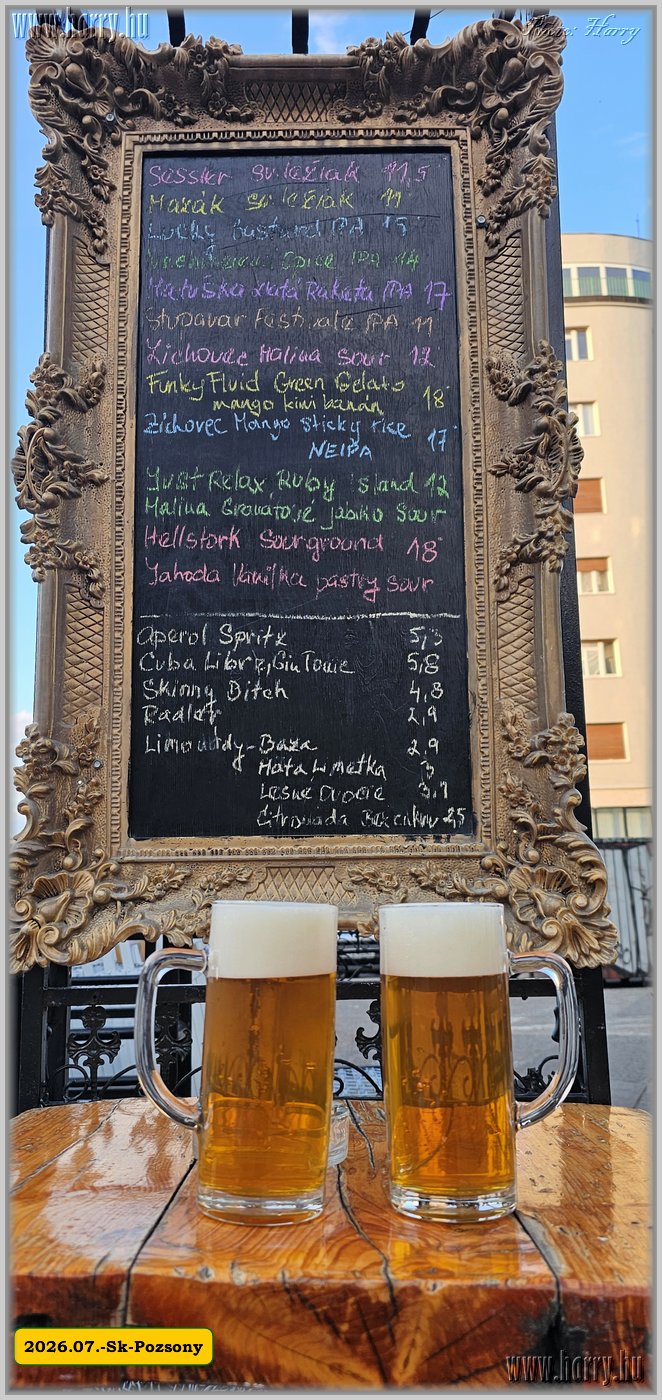 www.horry.hu
Photo: Horry
Sessler sv. ležiak 11,5
Mazák sv. ležiak 11°
Lucky Bastard IPA 15°
Spice IPA 14
Matuška zlatá Raketa IPA 17
Stupavar Festivale IPA 11
Zichovec Malina sour 12
Funky Fluid Green Gelato
mango kiwi banán 18°
Zichovec Mango sticky rice 17°
NEIPA
Just Relax Ruby island 12
Malina Granátové jablko sour
Hellstork Sourground 18°
Jahoda Vanilka pastry sour
Aperol Spritz 5,5
Cuba Libre, Gin Tonic 5,8
Skinny Bitch 4,8
Radler 2,9
Limonády - Baza 2,9
Mäta Limetka 3
Lesné Ovocie 3,1
Citronáda 2,5
2026.07.-Sk-Pozsony
www.horry.hu